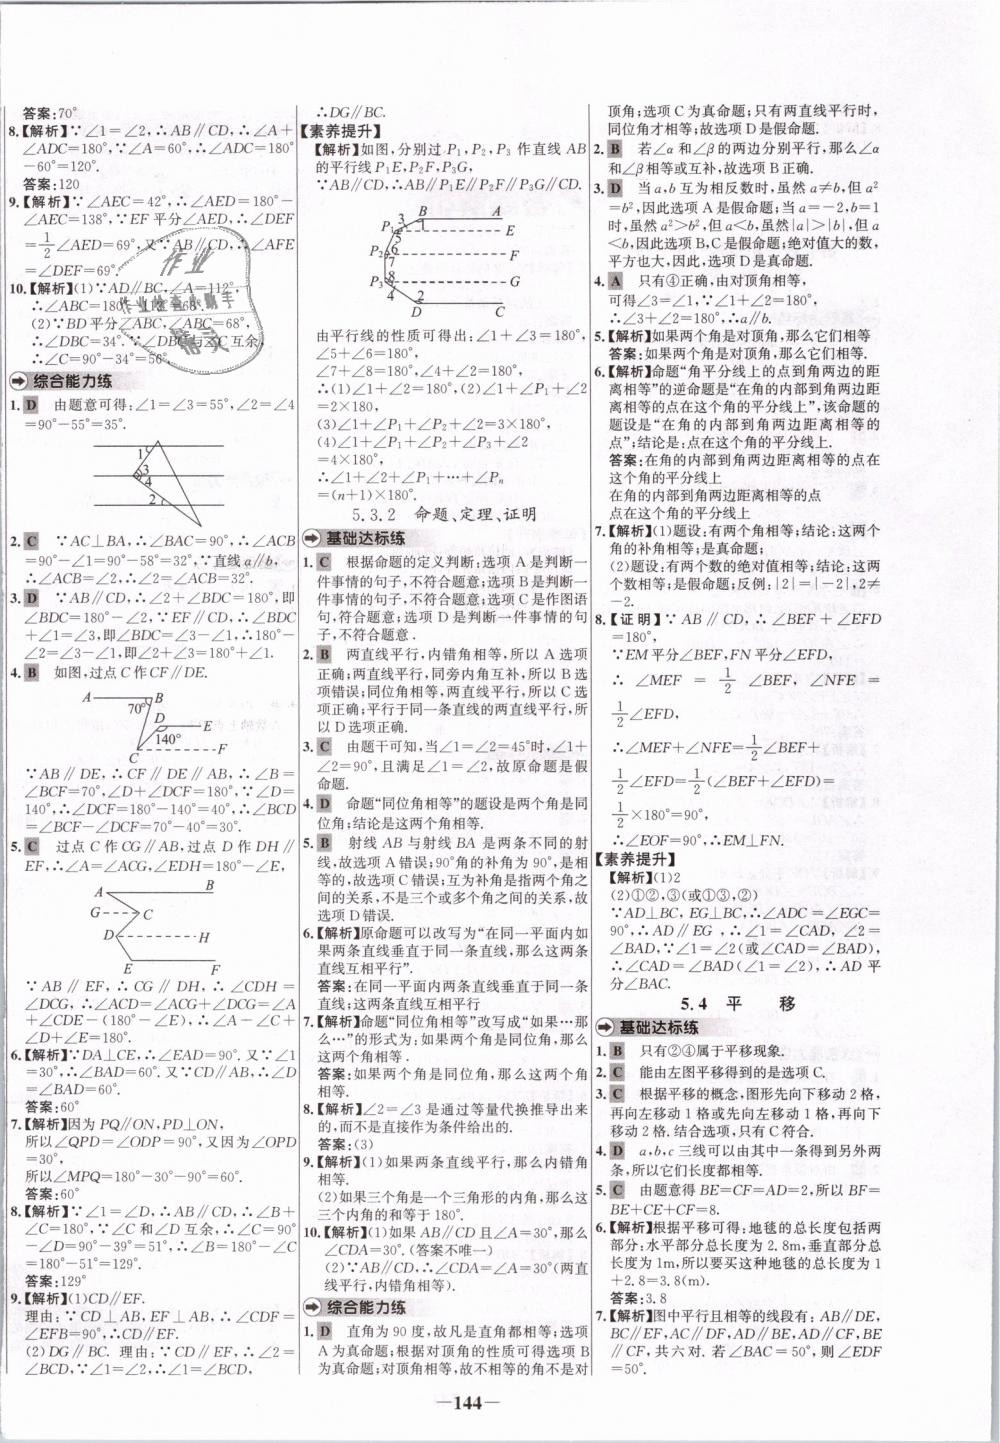 答案:70°
8.【解析】∵∠1=∠2,∴AB∥CD,∴∠A+
∠ADC=180°,∵∠A=60°,∴∠ADC=180°
-60°=120°.
答案:120
9.【解析】∵∠AEC=42°,∴∠AED=180°-
∠AEC=138°,∵EF平分∠AED,∴∠DEF
=1/2∠AED=69°,又∵AB∥CD,∴∠AFE
=∠DEF=69°.
10.【解析】(1)∵AD∥BC,∠A=112°,
∴∠ABC=180°-112°=68°.
(2)∵BD平分∠ABC,∠ABC=68°,
∴∠DBC=34°.∵∠DBC与∠C互余,
∴∠C=90°-34°=56°.
综合能力练
1. D 由题意可得:∠1=∠3=55°,∠2=∠4
=90°-55°=35°.
1
3
4
2
2. C ∵AC⊥BA,∴∠BAC=90°,∴∠ACB
=90°-∠1=90°-58°=32°,∵直线a∥b,
∴∠ACB=∠2,∴∠2=∠ACB=32°.
3. D ∵AB∥CD,∴∠2+∠BDC=180°,即
∠BDC=180°-∠2,∵EF∥CD,∴∠BDC
+∠1=∠3,即∠BDC=∠3-∠1,∴180°-
∠2=∠3-∠1,即∠2+∠3=180°+∠1.
4. B 如图,过点C作CF∥DE.
A B
70°
D E
140°
C F
∵AB∥DE,∴CF∥DE∥AB,∴∠B=
∠BCF=70°,∠D+∠DCF=180°,∵∠D=
140°,∴∠DCF=180°-140°=40°,∴∠BCD
=∠BCF-∠DCF=70°-40°=30°.
5. C 过点C作CG∥AB,过点D作DH∥
EF,∴∠A=∠ACG,∠EDH=180°-∠E,
A B
G C
D H
E F
∵AB∥EF,∴CG∥DH,∴∠CDH=
∠DCG,∴∠ACD=∠ACG+∠DCG=∠A
+∠CDE-(180°-∠E),∴∠A-∠C+
∠D+∠E=180°.
6.【解析】∵DA⊥CE,∴∠EAD=90°.又∵∠1
=30°,∴∠BAD=60°.又∵CD∥AB,∴∠D
=∠BAD=60°.
答案:60°
7.【解析】因为PQ∥ON,PD⊥ON,
所以∠QPD=∠ODP=90°,又因为∠OPD
=30°,
所以∠MPQ=180°-30°-90°=60°.
答案:60°
8.【解析】∵∠1=∠D,∴AB∥CD,∴∠B+
∠C=180°,∵∠C和∠D互余,∴∠C=90°
-∠D=90°-39°=51°,∴∠B=180°-∠C
=180°-51°=129°.
答案:129°
9.【解析】(1)CD∥EF.
理由:∵CD⊥AB,EF⊥AB,∴∠CDF=
∠EFB=90°,∴CD∥EF.
(2)DG∥BC. 理由:∵CD∥EF,∴∠2=
∠BCD,∵∠1=∠2,∴∠1=∠BCD,
∴DG∥BC.
【素养提升】
【解析】如图,分别过P₁,P₂,P₃作直线AB
的平行线P₁E,P₂F,P₃G,
∵AB∥CD,∴AB∥P₁E∥P₂F∥P₃G∥CD.
3 B A
P₁ 1 5 E
P₂ 6 7 F
P₃ 8 G
4 2
D C
由平行线的性质可得出:∠1+∠3=180°,
∠5+∠6=180°,
∠7+∠8=180°,∠4+∠2=180°,
∴(1)∠1+∠2=180°,(2)∠1+∠P₁+∠2
=2×180°,
(3)∠1+∠P₁+∠P₂+∠2=3×180°,
(4)∠1+∠P₁+∠P₂+∠P₃+∠2
=4×180°,
∴∠1+∠2+∠P₁+…+∠Pₙ
=(n+1)×180°.
5.3.2 命题、定理、证明
基础达标练
1. C 根据命题的定义判断:选项A是判断一
件事情的句子,不符合题意;选项B是判断一
件事情的句子,不符合题意;选项C是作图语
句,符合题意;选项D是判断一件事情的句
子,不符合题意.
2. B 两直线平行,内错角相等,所以A选项
正确;两直线平行,同旁内角互补,所以B选
项错误;同位角相等,两直线平行,所以C选
项正确;平行于同一条直线的两直线平行,所
以D选项正确.
3. C 由题干可知,当∠1=∠2=45°时,∠1+
∠2=90°,且满足∠1=∠2,故原命题是假命
题.
4. D 命题“同位角相等”的题设是两个角是同
位角;结论是这两个角相等.
5. B 射线AB与射线BA是两条不同的射
线,故选项A错误;90°角的补角为90°,是相
等的,故选项C错误;互为补角是指两个角之
间的关系,不是三个或多个角之间的关系,故
选项D错误.
6.【解析】原命题可以改写为“在同一平面内如
果两条直线垂直于同一条直线,那么这两条
直线互相平行”.
答案:在同一平面内两条直线垂直于同一条
直线;这两条直线互相平行
7.【解析】命题“同位角相等”改写成“如果…那
么…”的形式为:如果两个角是同位角,那么
这两个角相等.
答案:如果两个角是同位角,那么这两个角
相等.
8.【解析】∠2=∠3是通过等量代换推导出来
的,而不是直接作为条件给出的.
答案:(3)
9.【解析】(1)如果两条直线平行,那么内错角
相等.
(2)如果三个角是一个三角形的内角,那么这
三个内角的和等于180°.
10.【解析】(1)如果AB∥CD且∠A=30°,那么
∠CDA=30°.(答案不唯一)
(2)∵AB∥CD,∴∠CDA=∠A=30°(两直
线平行,内错角相等).
综合能力练
1. D 直角为90度,故凡是直角都相等;选项
A为真命题;根据对顶角的性质可得选项B
为真命题;对顶角相等,故不相等的角不是对
顶角;选项C为真命题;只有两直线平行时,
同位角才相等;故选项D是假命题.
2. B 若∠α和∠β的两边分别平行,那么∠α
和∠β相等或互补,故选项B正确.
3. D 当a,b互为相反数时,虽然a≠b,但a²
=b²,因此选项A是假命题;当a=-2,b=1
时,虽然a²>b²,但a<b,虽然|a|>|b|,但a
<b,因此选项B,C是假命题;绝对值大的数,
平方也大,因此选项D是真命题.
4. A 只有④正确,由对顶角相等,
可得∠3=∠1,∵∠1+∠2=180°,
∴∠3+∠2=180°,∴a∥b.
5.【解析】如果两个角是对顶角,那么它们相等
答案:如果两个角是对顶角,那么它们相等.
6.【解析】命题“角平分线上的点到角两边的距
离相等”的逆命题是“在角的内部到角两边距
离相等的点在这个角的平分线上”,该命题的
题设是“在角的内部到角两边距离相等的
点”;结论是:点在这个角的平分线上.
答案:在角的内部到角两边距离相等的点在
这个角的平分线上
在角的内部到角两边距离相等的点
点在这个角的平分线上
7.【解析】(1)题设:有两个角相等;结论:这两个
角的补角相等;是真命题;
(2)题设:有两个数的绝对值相等;结论:这两
个数相等;是假命题;反例:|2|=|-2|,2≠
-2.
8.【证明】∵AB∥CD,∴∠BEF+∠EFD
=180°,
∵EM平分∠BEF,FN平分∠EFD,
∴∠MEF=1/2∠BEF,∠NFE=
1/2∠EFD,
∴∠MEF+∠NFE=1/2∠BEF+
1/2∠EFD=1/2(∠BEF+∠EFD)=
1/2×180°=90°,
∴∠EOF=90°,∴EM⊥FN.
【素养提升】
【解析】(1)2
(2)①②,③(或①③,②)
∵AD⊥BC,EG⊥BC,∴∠ADC=∠EGC=
90°,∴AD∥EG,∴∠1=∠CAD,∠2=
∠BAD,∵∠1=∠2(或∠CAD=∠BAD),
∴∠CAD=∠BAD(∠1=∠2),∴AD平
分∠BAC.
5.4 平移
基础达标练
1. B 只有②④属于平移现象.
2. C 能由左图平移得到的是选项C.
3. C 根据平移的概念,图形先向下移动2格,
再向左移动1格或先向左移动1格,再向下
移动2格.结合选项,只有C符合.
4. D a,b,c三线可以由其中一条得到另外两
条,所以它们长度都相等.
5. C 由题意得BE=CF=AD=2,所以BF=
BE+CE+CF=8.
6.【解析】根据平移可得:地毯的总长度包括两
部分:水平部分总长度为2.8m,垂直部分总
长度为1m,所以要买这种地毯的总长度为1
+2.8=3.8(m).
答案:3.8
7.【解析】图中平行且相等的线段有:AB∥DE,
BC∥EF,AC∥DF,AD∥BE,AD∥CF,BE
∥CF,共六对.若∠BAC=50°,则∠EDF
=50°.
—144—